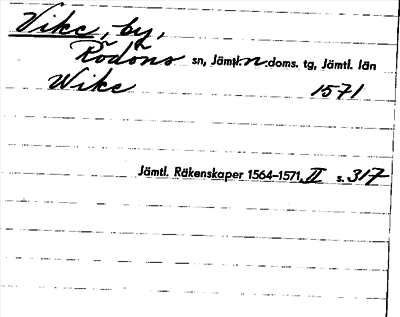 Vike, by,
Rödöns sn, Jämtl. n. doms. tg, Jämtl. län
Wike 1571
Jämtl. Räkenskaper 1564-1571, II s. 317